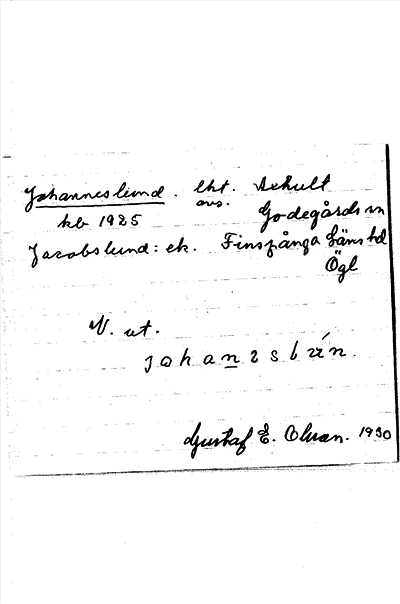 Johanneslund. lht. Axhult
avs.
kb 1925 Godegårds sn
Jacobslund: ek. Finspånga läns hd
Ögl
V. ut.
Gustaf E. Olsson. 1930